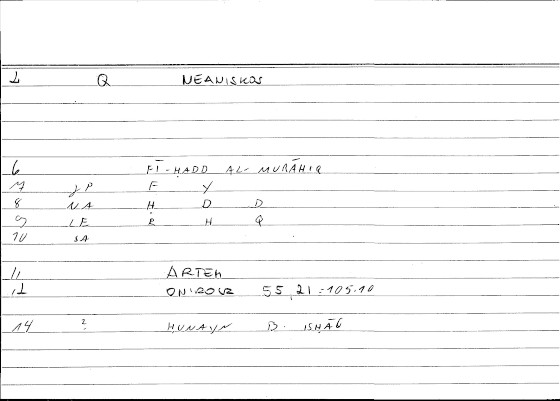 1 Q NEANISKOS
6 FĪ-ḤADD AL-MURĀHIQ
7 JP F Y
8 NA Ḥ D D
9 LE R H Q
10 SA
11 ARTEM
12 ONIROCR 55,21 = 105.10
14 ? ḤUNAYN B. ISḤĀQ